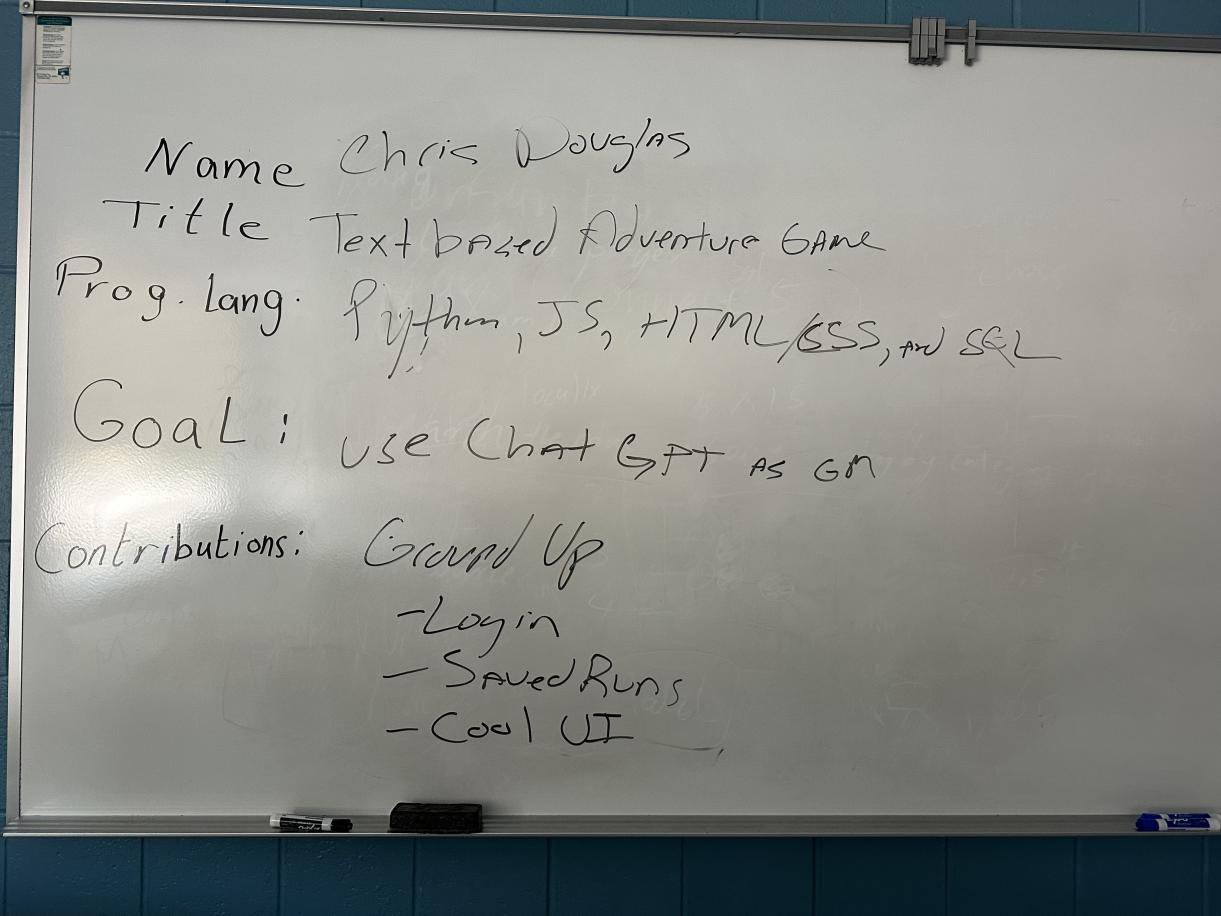 Name Chris Douglas
Title Text based Adventure Game
Prog. lang. Python, JS, HTML/CSS, and SQL
Goal: Use Chat GPT as GM
Contributions: Ground Up
- Login
- Saved Runs
- Cool UI